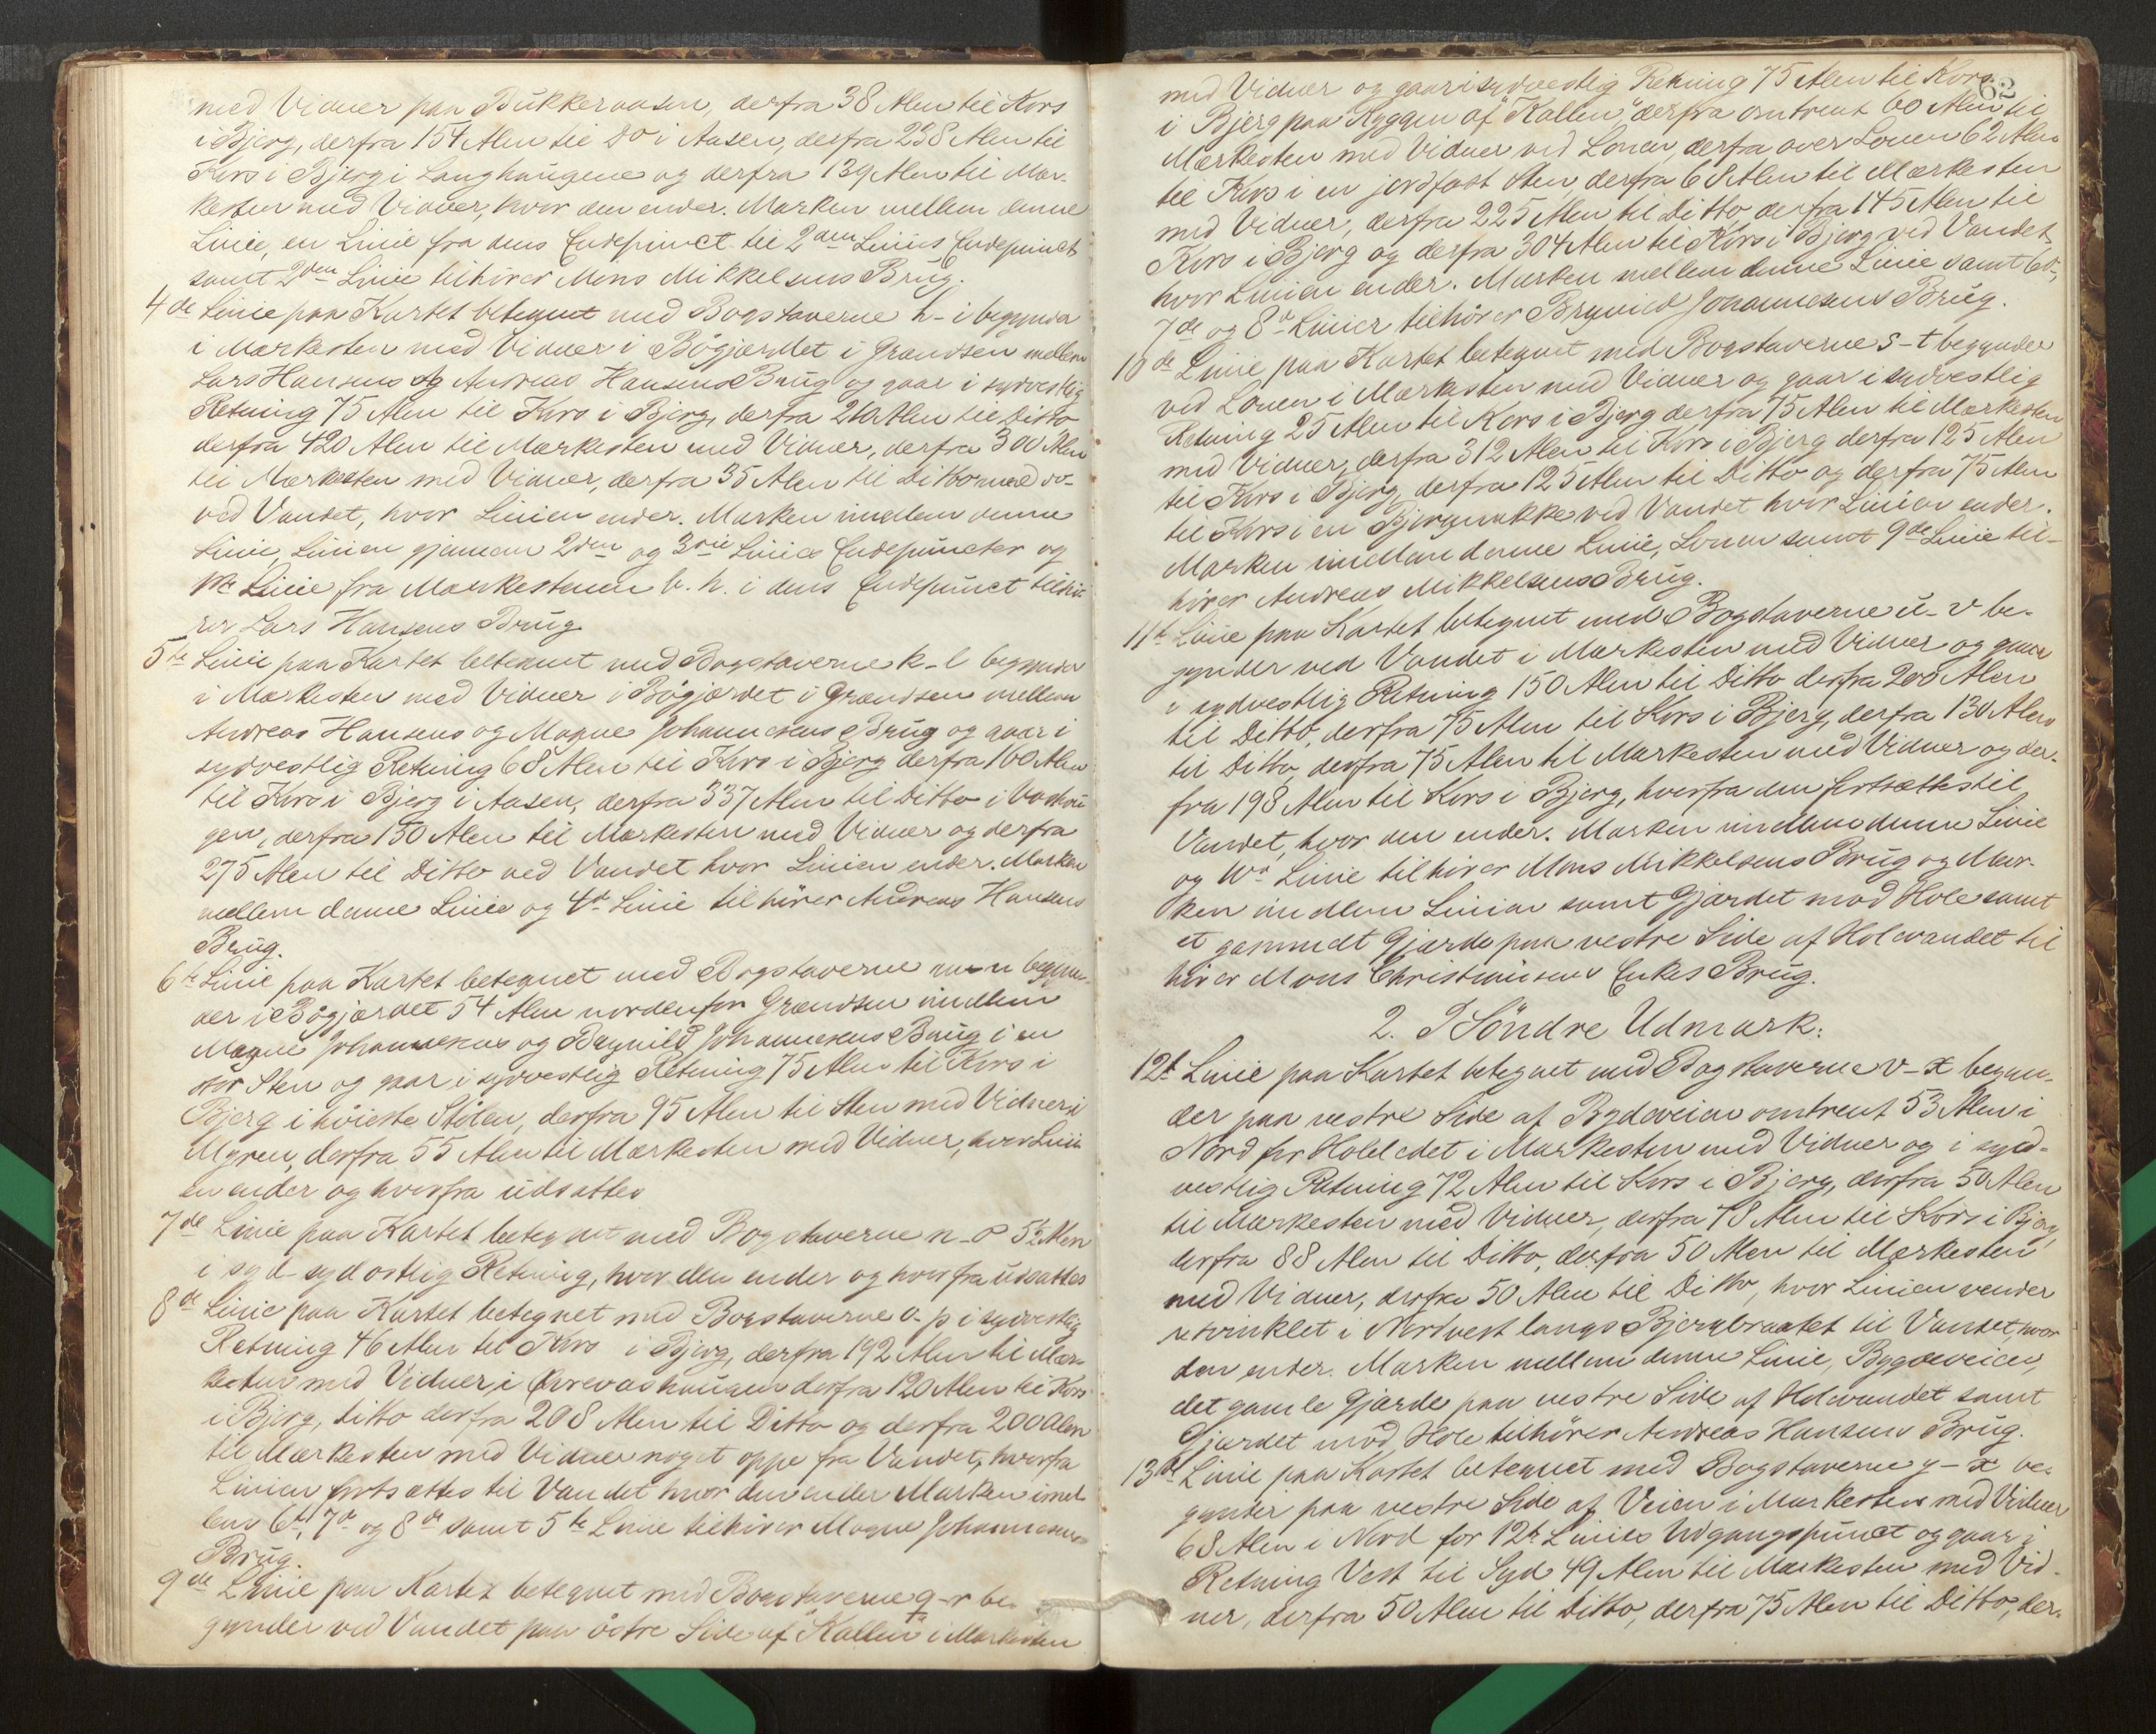 med Vidner paa Bukkeraasen, derfra 38 Alen til Kors
i Bjerg, derfra 154 Alen til do i Aasen, derfra 238 Alen til
Kors i Bjerg i Langhaugene og derfra 139 Alen til Mær-
kesten med Vidner, hvor den ender. Marken mellem denne
Linie, en Linie fra dens Endepunct til 2den Linies Endepunct
samt 2den Linie tilhører Mons Mikkelsens Brug.
4de Linie paa Kartet betegnet med Bogstaverne h-i begynder
i Mærkesten med Vidner i Bøgjærdet i Grændsen mellem
Lars Hansens og Andreas Hansens Brug og gaar i sydvestlig
Retning 75 Alen til Kors i Bjerg, derfra 210 Alen til Ditto
derfra 420 Alen til Mærkesten med Vidner, derfra 300 Alen
til Mærkesten med Vidner, derfra 35 Alen til Ditto med do-
ved Vandet, hvor Linien ender. Marken imellem denne
Linie, Linien gjennem 2den og 3die Linies Endepuncter og
Linie fra Mærkestenen b. h. i dens Endepunct tilhø-
rer Lars Hansens Brug
5te Linie paa Kartet betegnet med Bogstaverne k-l begynder
i Mærkesten med Vidner i Bøgjærdet i Grændsen mellem
Andreas Hansens og Magne Johannesens Brug og gaar i
sydvestlig Retning 68 Alen til Kors i Bjerg derfra 160 Alen
til Kors i Bjerg i Aasen, derfra 337 Alen til Ditto i Vashau-
gen, derfra 150 Alen til Mærkesten med Vidner og derfra
275 Alen til Ditto ved Vandet hvor Linien ender. Marken
mellem denne Linie og 4de Linie tilhører Andreas Hansens
Brug.
6te Linie paa Kartet betegnet med Bogstaverne m-n begyn-
der i Bøgjærdet 54 Alen nordenfor Grændsen imellem
Magne Johannesens og Brynild Johannesens Brug i en
stor Sten og gaar i sydvestlig Retning 75 Alen til Kors i
Bjerg i høieste Stølen, derfra 95 Alen til Sten med Vidner i
Myren, derfra 55 Alen til Mærkesten med Vidner, hvor Lini-
en ender og hvorfra udsættes
7de Linie paa Kartet betegnet med Bogstaverne n-o 52 Alen
i syd-sydostlig Retning, hvor den ender og hvorfra udsættes
8de Linie paa Kartet betegnet med Bogstaverne o-p i sydvestlig
Retning 46 Alen til Kors i Bjerg, derfra 192 Alen til Mær-
kesten med Vidner i Ørrevashaugen derfra 120 Alen til Kors
i Bjerg, ditto derfra 208 Alen til Ditto og derfra 200 Alen
til Mærkesten med Vidner noget oppe fra Vandet, hvorfra
Linien fortsættes til Vandet hvor den ender Marken imel-
lem 6te, 7de og 8de samt 5te Linie tilhører Magne Johannesens
Brug.
9de Linie paa Kartet betegnet med Bogstaverne q-r be-
gynder ved Vandet paa østre Side af "Kallen" i Mærkesten
62
med Vidner og gaar i sydvestlig Retning 75 Alen til Kors
i Bjerg paa Ryggen af "Kallen", derfra omtrent 60 Alen til
Mærkesten med Vidner ved Lonen, derfra over Lonen 62 Alen
til Kors i en jordfast Sten, derfra 68 Alen til Mærkesten
med Vidner, derfra 225 Alen til Ditto derfra 145 Alen til
Kors i Bjerg og derfra 304 Alen til Kors i Bjerg ved Vandet,
hvor Linien ender. Marken mellem denne Linie samt 6te,
7de og 8de Linier tilhører Brynild Johannesens Brug.
10de Linie paa Kartet betegnet med Bogstaverne s-t begynder
ved Lonen i Mærkesten med Vidner og gaar i sydvestlig
Retning 25 Alen til Kors i Bjerg derfra 75 Alen til Mærkesten
med Vidner, derfra 312 Alen til Kors i Bjerg derfra 125 Alen
til Kors i Bjerg, derfra 125 Alen til Ditto og derfra 75 Alen
til Kors i en Bjergnakke ved Vandet hvor Linien ender.
Marken imellem denne Linie, Lonen samt 9de Linie til-
hører Andreas Mikkelsens Brug.
11te Linie paa Kartet betegnet med Bogstaverne u-v be-
gynder ved Vandet i Mærkesten med Vidner og gaar
i sydvestlig Retning 150 Alen til Ditto derfra 200 Alen
til Ditto, derfra 75 Alen til Kors i Bjerg, derfra 130 Alen
til Ditto, derfra 75 Alen til Mærkesten med Vidner og der-
fra 198 Alen til Kors i Bjerg, hvorfra den fortsættes til
Vandet, hvor den ender. Marken imellem denne Linie
og 10de Linie tilhører Mons Mikkelsens Brug og Mar-
ken imellem Linien samt Gjærdet mod Hole samt
et gammelt Gjærde paa vestre Side af Holevandet til
hører Mons Christensens Enkes Brug.
2. I Söndre Udmark:
12te Linie paa Kartet betegnet med Bogstaverne v-x begyn-
der paa vestre Side af Bygdeveien omtrent 53 Alen i
Nord for Holeledet i Mærkesten med Vidner og i syd-
vestlig Retning 72 Alen til Kors i Bjerg, derfra 50 Alen
til Mærkesten med Vidner, derfra 78 Alen til Kors i Bjerg,
derfra 88 Alen til Ditto, derfra 50 Alen til Mærkesten
med Vidner, derfra 50 Alen til Ditto, hvor Linien vender
retvinklet i Nordvest langs Bjergbraatet til Vandet, hvor
den ender. Marken mellem denne Linie, Bygdeveien,
det gamle Gjærde paa vestre Side af Holevandet samt
Gjærdet mod Hole tilhører Andreas Hansens Brug.
13de Linie paa Kartet betegnet med Bogstaverne y-z be-
gynder paa vestre Side af Veien i Mærkesten med Vidner
68 Alen i Nord for 12te Linies Udgangspunct og gaar i
Retning Vest til Syd 49 Alen til Mærkesten med Vid-
ner, derfra 50 Alen til Ditto, derfra 75 Alen til Ditto, der-